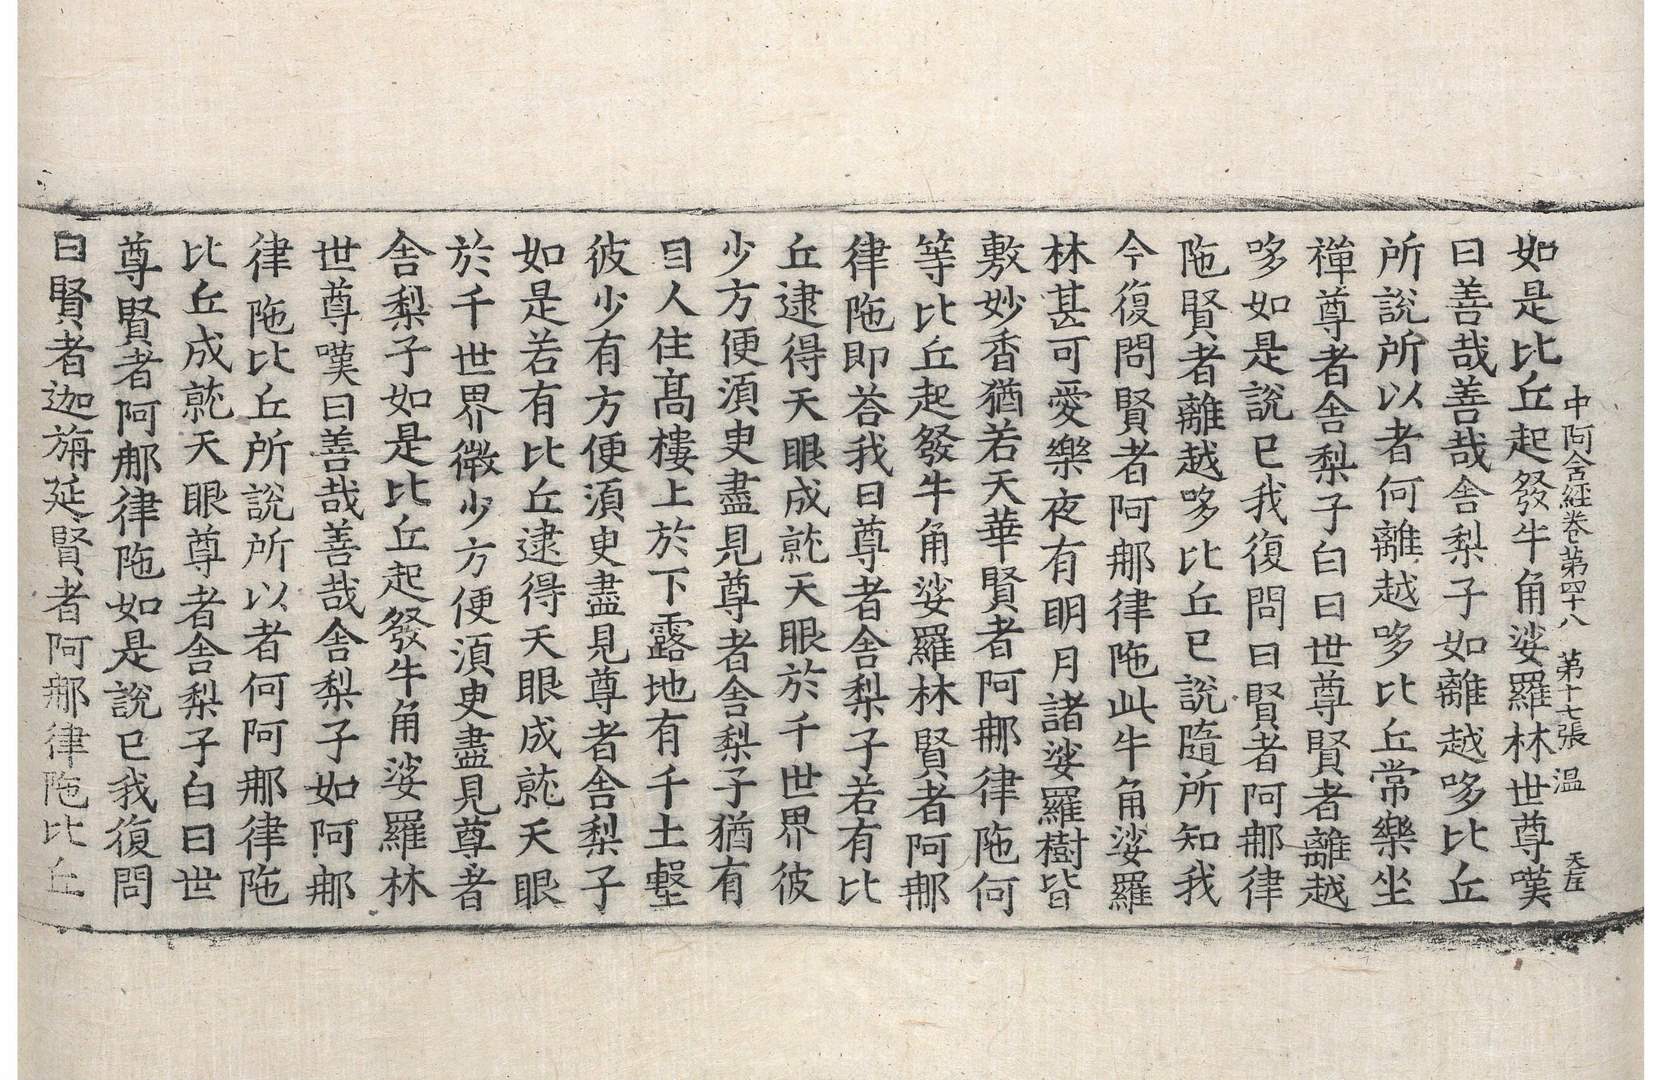 中阿含経卷第四十八 第十七張 温
如是比丘起發牛角娑羅林世尊嘆
曰善哉善哉舍梨子如離越哆比丘
所說所以者何離越哆比丘常樂坐
禪尊者舍梨子白曰世尊賢者離越
哆如是說已我復問曰賢者阿那律
陁賢者離越哆比丘已說隨所知我
今復問賢者阿那律陁此牛角娑羅
林甚可愛樂夜有明月諸娑羅樹皆
敷妙香猶若天華賢者阿那律陁何
等比丘起發牛角娑羅林賢者阿那
律陁即荅我曰尊者舍梨子若有比
丘逮得天眼成就天眼於千世界彼
少方便須臾盡見尊者舍梨子猶有
目人住高樓上於下露地有千土墼
彼少有方便須臾盡見尊者舍梨子
如是若有比丘逮得天眼成就天眼
於千世界微少方便須臾盡見尊者
舍梨子如是比丘起發牛角娑羅林
世尊嘆曰善哉善哉舍梨子如阿那
律陁比丘所說所以者何阿那律陁
比丘成就天眼尊者舍梨子白曰世
尊賢者阿那律陁如是說已我復問
曰賢者迦旃延賢者阿那律陁比丘